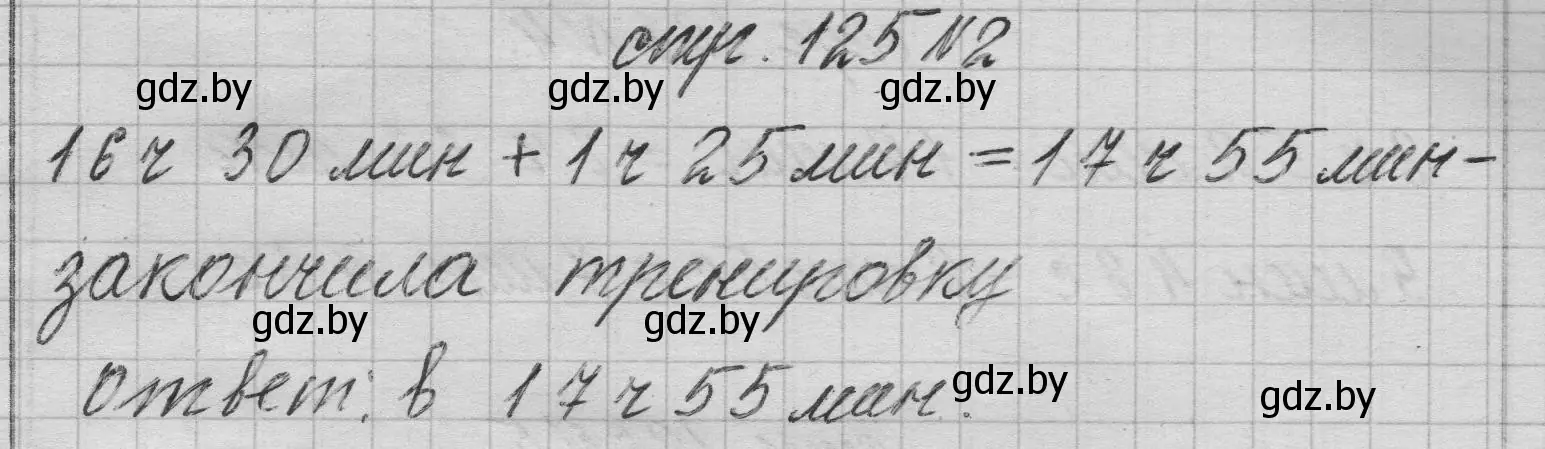 стр. 125 №2
gdz.by gdz.by gdz.by
16 ч 30 мин + 1 ч 25 мин = 17 ч 55 мин –
закончила тренировку
gdz.by gdz.by
Ответ: в 17 ч 55 мин.
gdz.by gdz.by